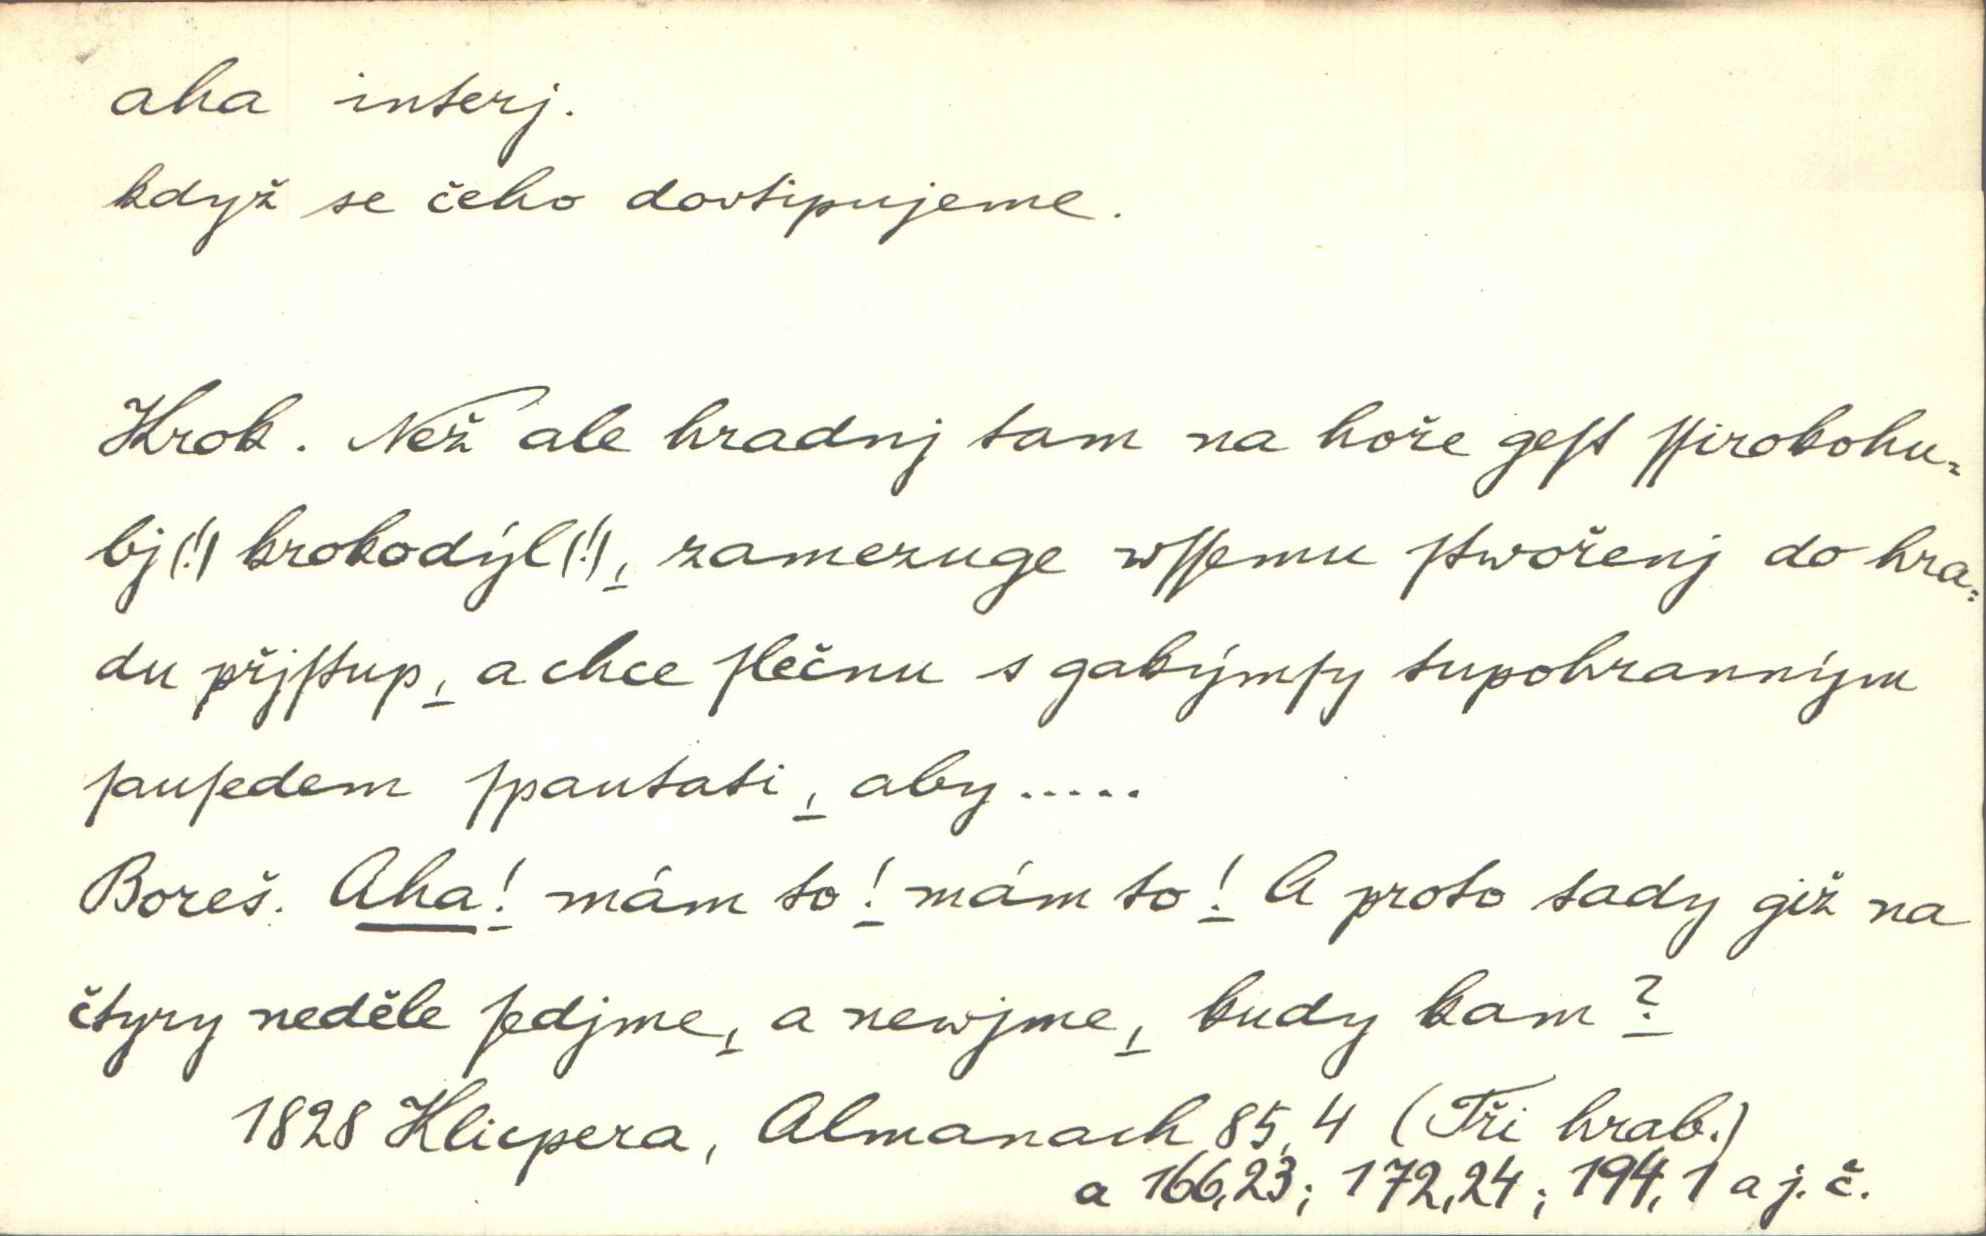 aha interj.
když se čeho dovtipujeme.
Krok. Než ale hradnj tam na hoře geſt ſſirokohu-
bj(!) krokodýl(!), zamezuge wſſemu ſtwořenj do hra-
du přjſtup, a chce ſlečnu s gakýmſy tupohranným
ſauſedem ſpautati, aby.....
Boreš. Aha! mám to! mám to! A proto tady giž na
čtyry neděle ſedjme, a newjme, kudy kam?
1828 Klicpera, Almanach 85,4 (Tři hrab.)
a 166,23; 172,24; 194,1 a j. č.